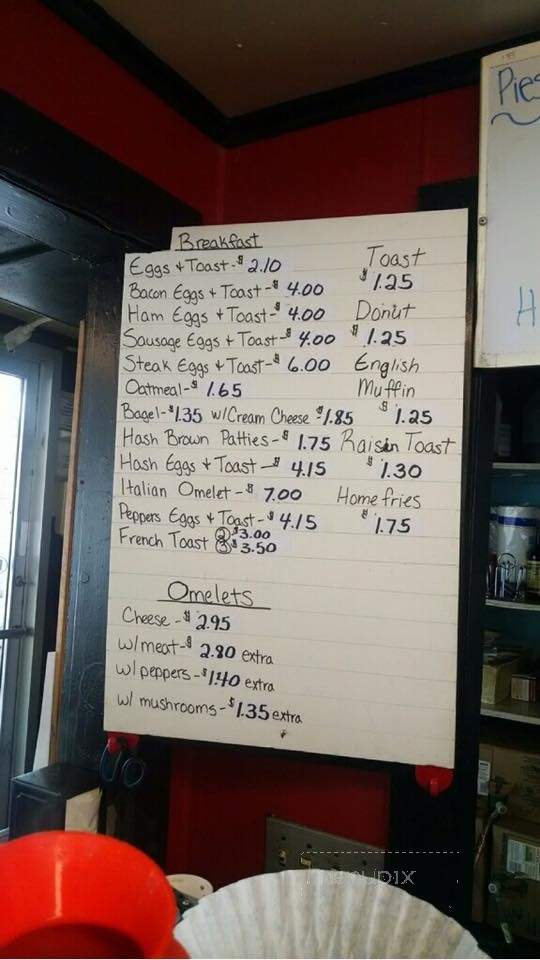 Breakfast
Eggs + Toast - $ 2.10
Bacon Eggs + Toast - $ 4.00
Ham Eggs + Toast - $ 4.00
Sausage Eggs + Toast - $ 4.00
Steak Eggs + Toast - $ 6.00
Oatmeal - $ 1.65
Bagel - $1.35 w/Cream Cheese $1.85
Hash Brown Patties - $ 1.75
Hash Eggs + Toast - $ 4.15
Italian Omelet - $ 7.00
Peppers Eggs + Toast - $ 4.15
French Toast 2 $3.00
3 $3.50
Toast
$ 1.25
Donut
$ 1.25
English
Muffin
$ 1.25
Raisin Toast
$ 1.30
Homefries
$ 1.75
Omelets
Cheese - $ 2.95
w/meat - $ 2.80 extra
w/peppers - $1.40 extra
w/ mushrooms - $1.35 extra
Pies
H